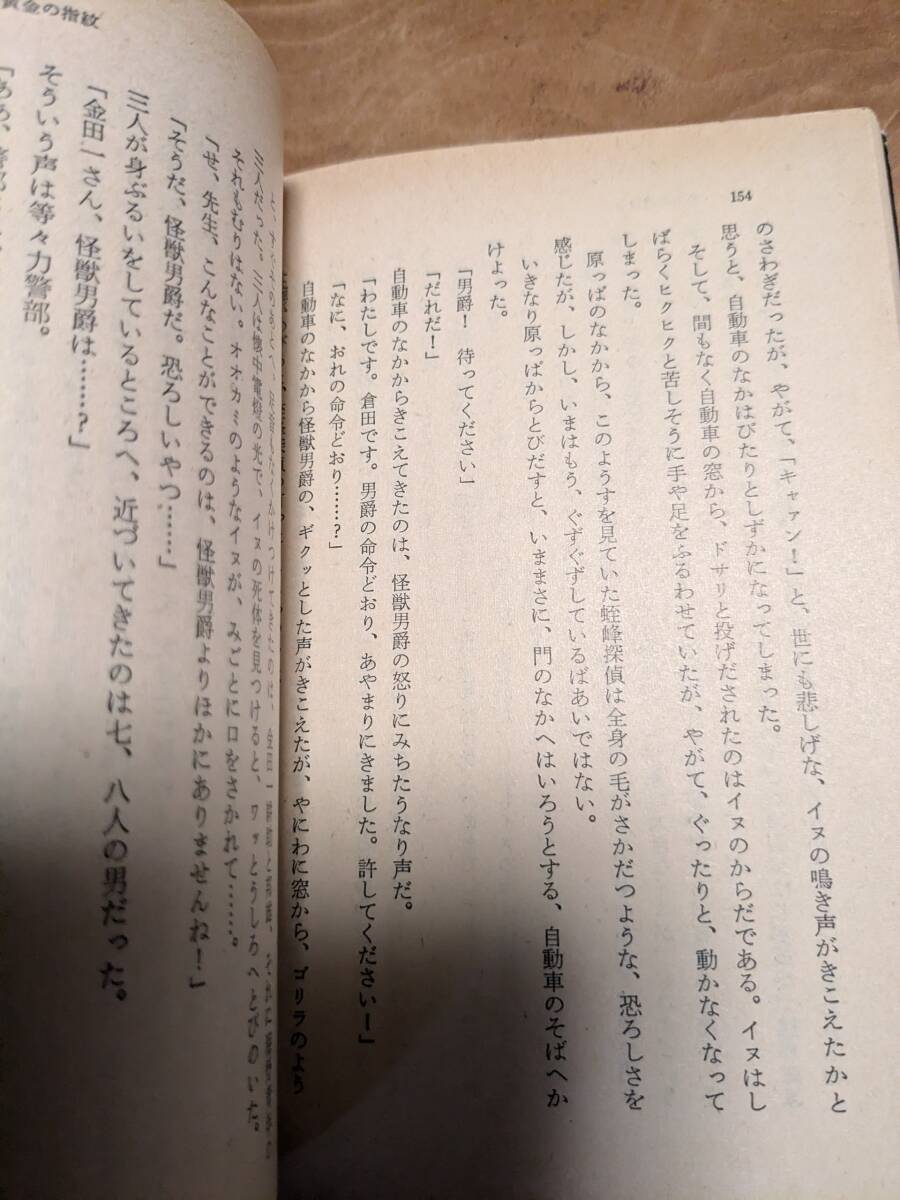 154
のさわぎだったが、やがて、「キャァン！」と、世にも悲しげな、イヌの鳴き声がきこえたかと
思うと、自動車のなかはぴたりとしずかになってしまった。
そして、間もなく自動車の窓から、ドサリと投げだされたのはイヌのからだである。イヌはし
ばらくヒクヒクと苦しそうに手や足をふるわせていたが、やがて、ぐったりと、動かなくなって
しまった。
原っぱのなかから、このようすを見ていた蛭峰探偵は全身の毛がさかだつような、恐ろしさを
感じたが、しかし、いまはもう、ぐずぐずしているばあいではない。
いきなり原っぱからとびだすと、いままさに、門のなかへはいろうとする、自動車のそばへか
けよった。
「男爵！　待ってください」
「だれだ！」
自動車のなかからきこえてきたのは、怪獣男爵の怒りにみちたうなり声だ。
「わたしです。倉田です。男爵の命令どおり、あやまりにきました。許してください！」
「なに、おれの命令どおり……？」
自動車のなかから怪獣男爵の、ギクッとした声がきこえたが、やにわに窓から、ゴリラのよう
黄金の指紋
三人だった。三人は懐中電燈の光で、イヌの死体を見つけると、ワッとうしろへとびのいた。
それもむりはない。オオカミのようなイヌが、みごとに口をさかれて……。
「せ、先生、こんなことができるのは、怪獣男爵よりほかにありませんね！」
「そうだ、怪獣男爵だ。恐ろしいやつ……」
三人が身ぶるいをしているところへ、近づいてきたのは七、八人の男だった。
「金田一さん、怪獣男爵は……？」
そういう声は等々力警部。
「ああ、警部